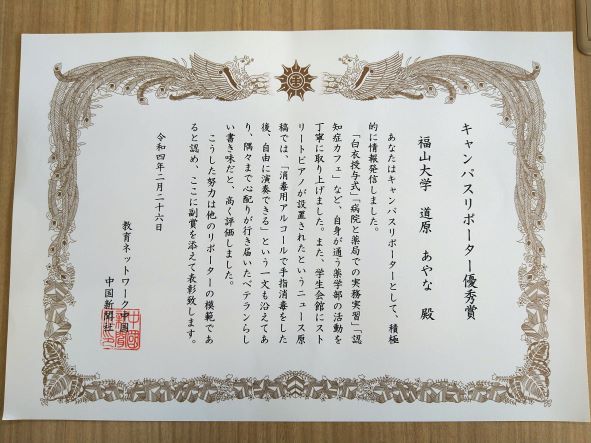 キャンパスリポーター優秀賞
福山大学　道原　あやな　殿
あなたはキャンパスリポーターとして、積極
的に情報発信しました。
「白衣授与式」「病院と薬局での実務実習」「認
知症カフェ」など、自身が通う薬学部の活動を
丁寧に取り上げました。また、学生会館にスト
リートピアノが設置されたというニュース原
稿では、「消毒用アルコールで手指消毒をした
後、自由に演奏できる」という一文も沿えてあ
り、隅々まで心配りが行き届いたベテランらし
い書き味だと、高く評価しました。
こうした努力は他のリポーターの模範であ
ると認め、ここに副賞を添えて表彰致します。
令和四年二月二十六日
教育ネットワーク中国
中国新聞社